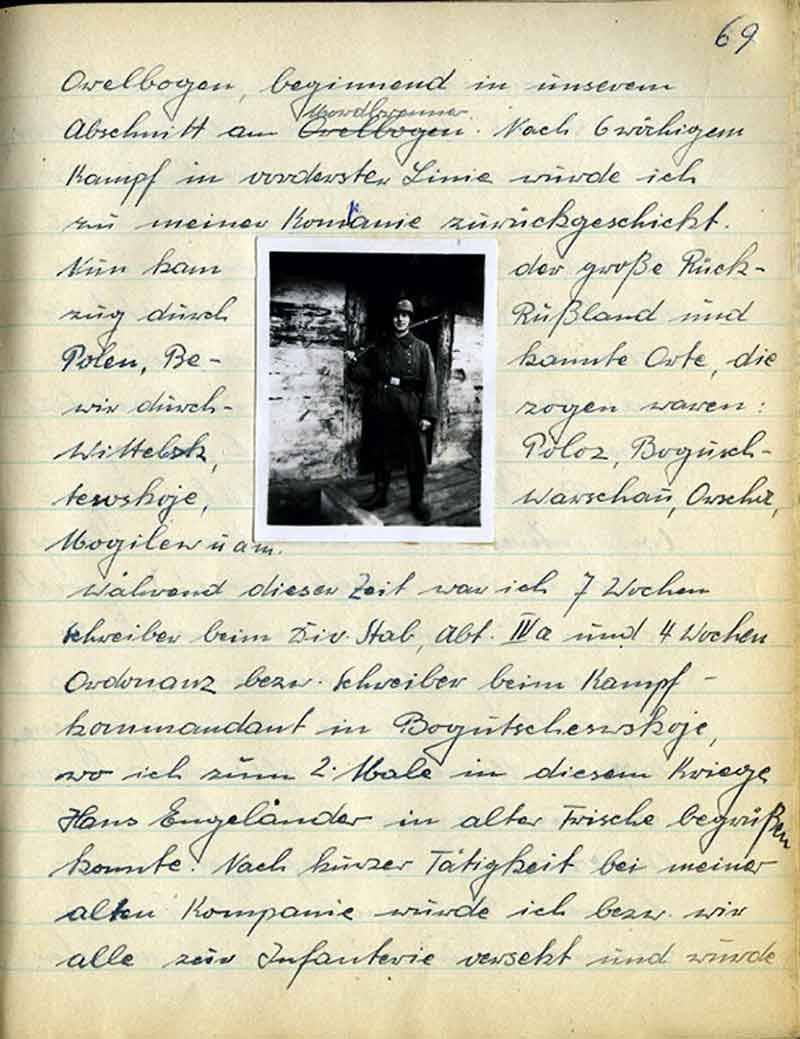 69
Orelbogen, beginnend in unserem
Mordbrenner
Abschnitt am Orelbogen. Nach 6 wöchigem
Kampf in vorderster Linie wurde ich
zu meiner Komkanie zurückgeschickt.
Nun kam der große Rück-
zug durch Rußland und
Polen, Be- kannte Orte, die
wir durch- zogen waren:
Wittebsk, Poloz, Bogusch-
tewskoje, Warschau, Orscha,
Mogilew u am.
Während dieser Zeit war ich 7 Wochen
Schreiber beim Div. Stab, Abt. IVa und 4 Wochen
Ordonanz bezw. Schreiber beim Kampf-
kommandant in Bogutschewskoje,
wo ich zum 2. Male in diesem Kriege
Hans Engeländer in alter Frische begrüßen
konnte. Nach kurzer Tätigkeit bei meiner
alten Kompanie wurde ich bezw. wir
alle zur Infanterie versetzt und wurde